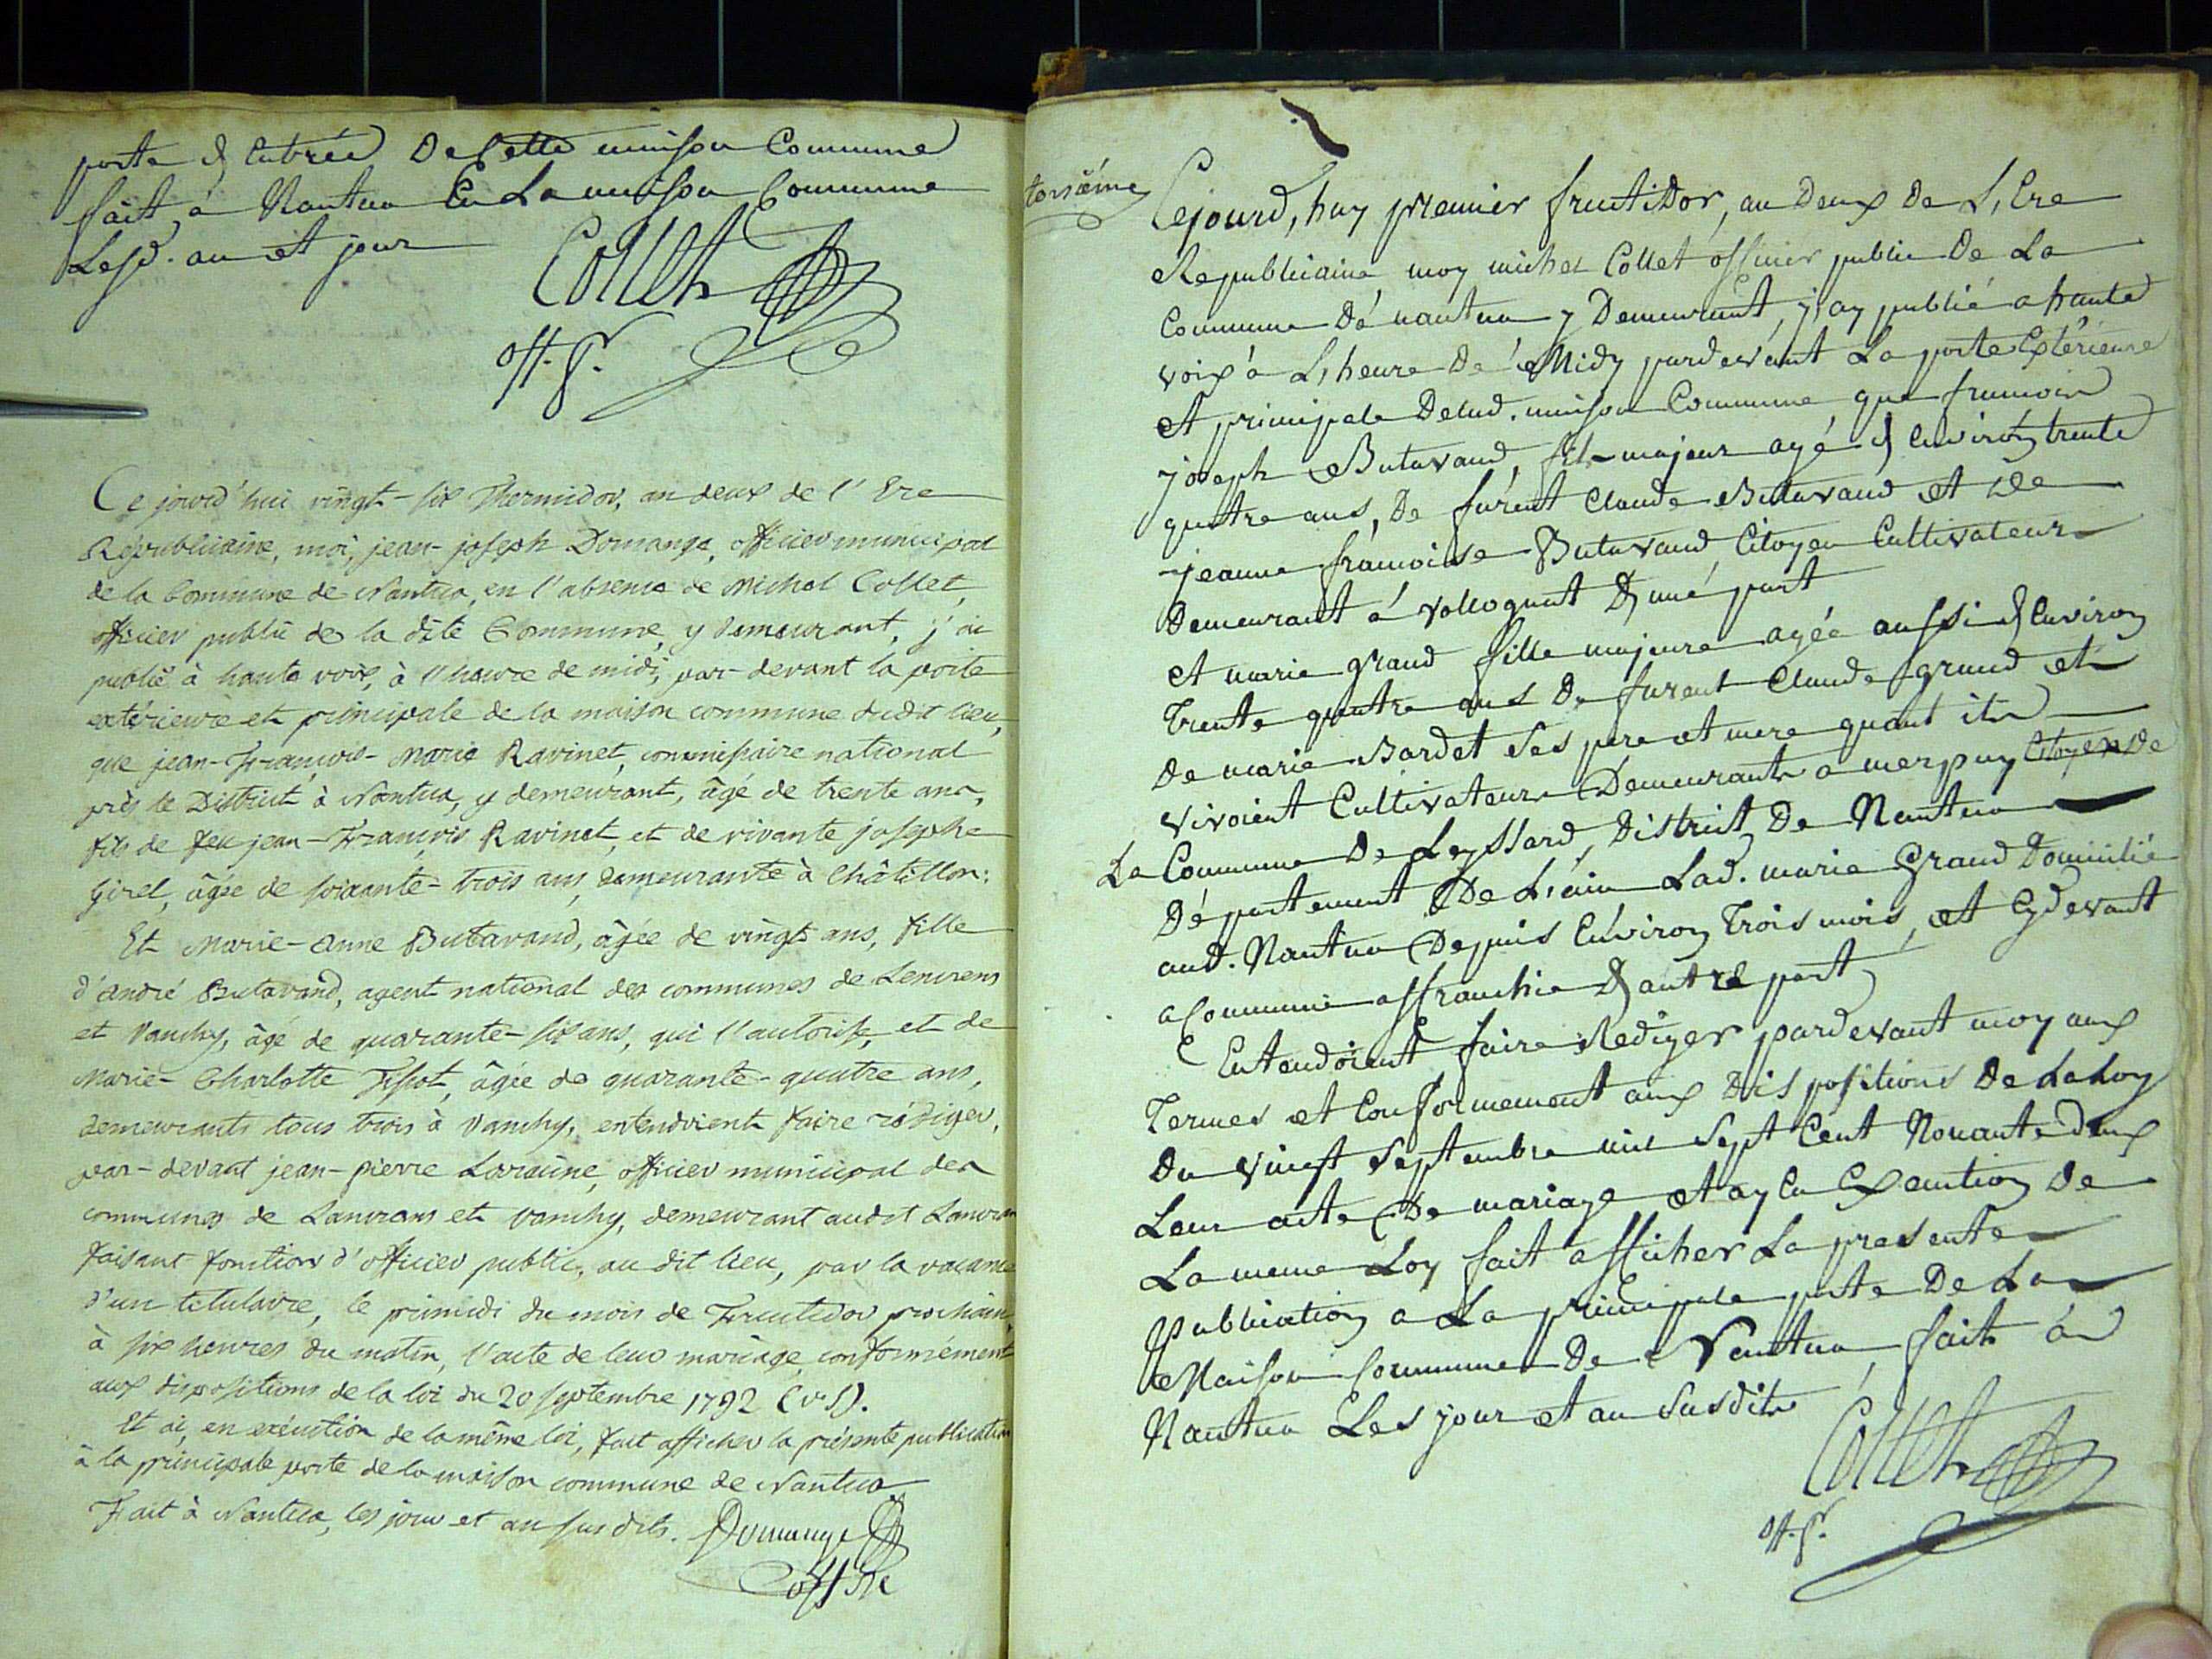 porte d'entrée De Cette maison Commune
fait à Nantua En La maison Commune
Lesd. an et jour
Collet
off. p.
Ce jourd'hui vingt-six Thermidor, an deux de l'Ere
Républicaine, moi, jean-joseph Domange, officier municipal
de la Commune de Nantua, en l'absence de Michel Collet,
officier public de la dite Commune, y demeurant, j'ai
publié à haute voix, à l'heure de midi, par-devant la porte
extérieure et principale de la maison commune dudit lieu,
que jean-François-Marie Ravinet, commissaire national
près le District à Nantua, y demeurant, âgé de trente ans,
fils de feu jean-François Ravinet, et de vivante josephe
Girel, âgée de soixante-trois ans, demeurante à Châtillon:
Et Marie-Anne Butavand, âgée de vingt ans, fille
d'André Butavand, agent national des communes de Lancrans
et Vanchy, âgé de quarante-six ans, qui l'autorise, et de
Marie-Charlotte Tissot, âgée de quarante-quatre ans,
demeurants tous trois à Vanchy, entendoient faire rédiger,
par-devant jean-pierre Laracine, officier municipal des
communes de Lancrans et Vanchy, demeurant audit Lancran
faisant fonction d'officier public, au dit lieu, par la vacance
d'un titulaire, le primidi du mois de Fructidor prochain,
à six heures du matin, l'acte de leur mariage conformément
aux dispositions de la loi du 20 septembre 1792 (v.s).
Et ai, en exécution de la même loi, fait afficher la présente publication
à la principale porte de la maison commune de Nantua
Fait à Nantua, les jour et an susdits. Domange
off.
torsième
Cejourd'huy premier fructidor, an Deux De L'Ere
Republicaine, moy michel Collet officier public De La
Commune Dé nantua y Demeurant, j'ay publié a haute
voix à L'heure De Midy pardevant La porte Extérieure
et principale Delad. maison Commune, que francois
joseph Butavand, fils majeur agé d'environ trente
quatre ans, De furent Claude Butavand et De
jeanne francoise Butavand Citoyen Cultivateur
Demeurant à Vollognat D'une part
et marie grand fille majeure agée aussi d'Environ
Trente quatre ans De furent Claude grand et
De marie Bardet Ses pere et mere quant ils
vivoient Cultivateurs Demeurants a merpuy Citoyens De
La Commune De Leyssard, District De Nantua
Département De L'ain Lad. marie Grand Domicilié
aud. Nantua Depuis Environ Trois mois, et Cydevant
a Commune affranchie D'autre part
Entendoient faire Rediger pardevant moy aux
Termes et Conformement aux Dispositions De La Loy
Du vingt Septembre mil Sept Cent Nonante Deux
Leur acte De mariage et ay En Execution De
La meme Loy fait afficher La presente
publication a La principale porte De La
Maison Commune De Nantua, fait à
Nantua Les jour et an Susdits
Collet
off. p.